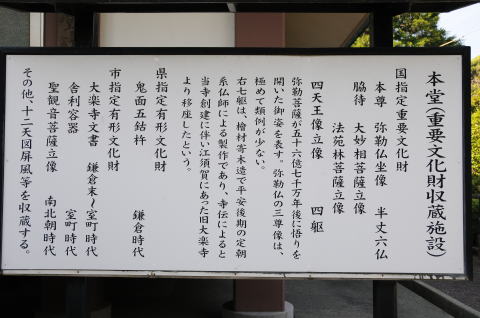 本堂(重要文化財収蔵施設)
国指定重要文化財
本尊 弥勒仏坐像 半丈六仏
脇待 大妙相菩薩立像
法苑林菩薩立像
四天王像立像 四躯
弥勒菩薩が五十六億七千万年後に悟りを
開いた御姿を表す。弥勒仏の三尊像は、
極めて類例が少ない。
右七躯は、檜材寄木造で平安後期の定朝
系仏師による製作であり、寺伝によると
当寺創建に伴い江須賀にあった旧大楽寺
より移座したという。
県指定有形文化財
鬼面五鈷杵 鎌倉時代
市指定有形文化財
大楽寺文書 鎌倉末~室町時代
舎利容器 室町時代
聖観音菩薩立像 南北朝時代
その他、十二天図屏風等を収蔵する。